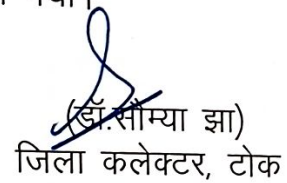 (डॉ.सौम्या झा)
जिला कलेक्टर, टोंक